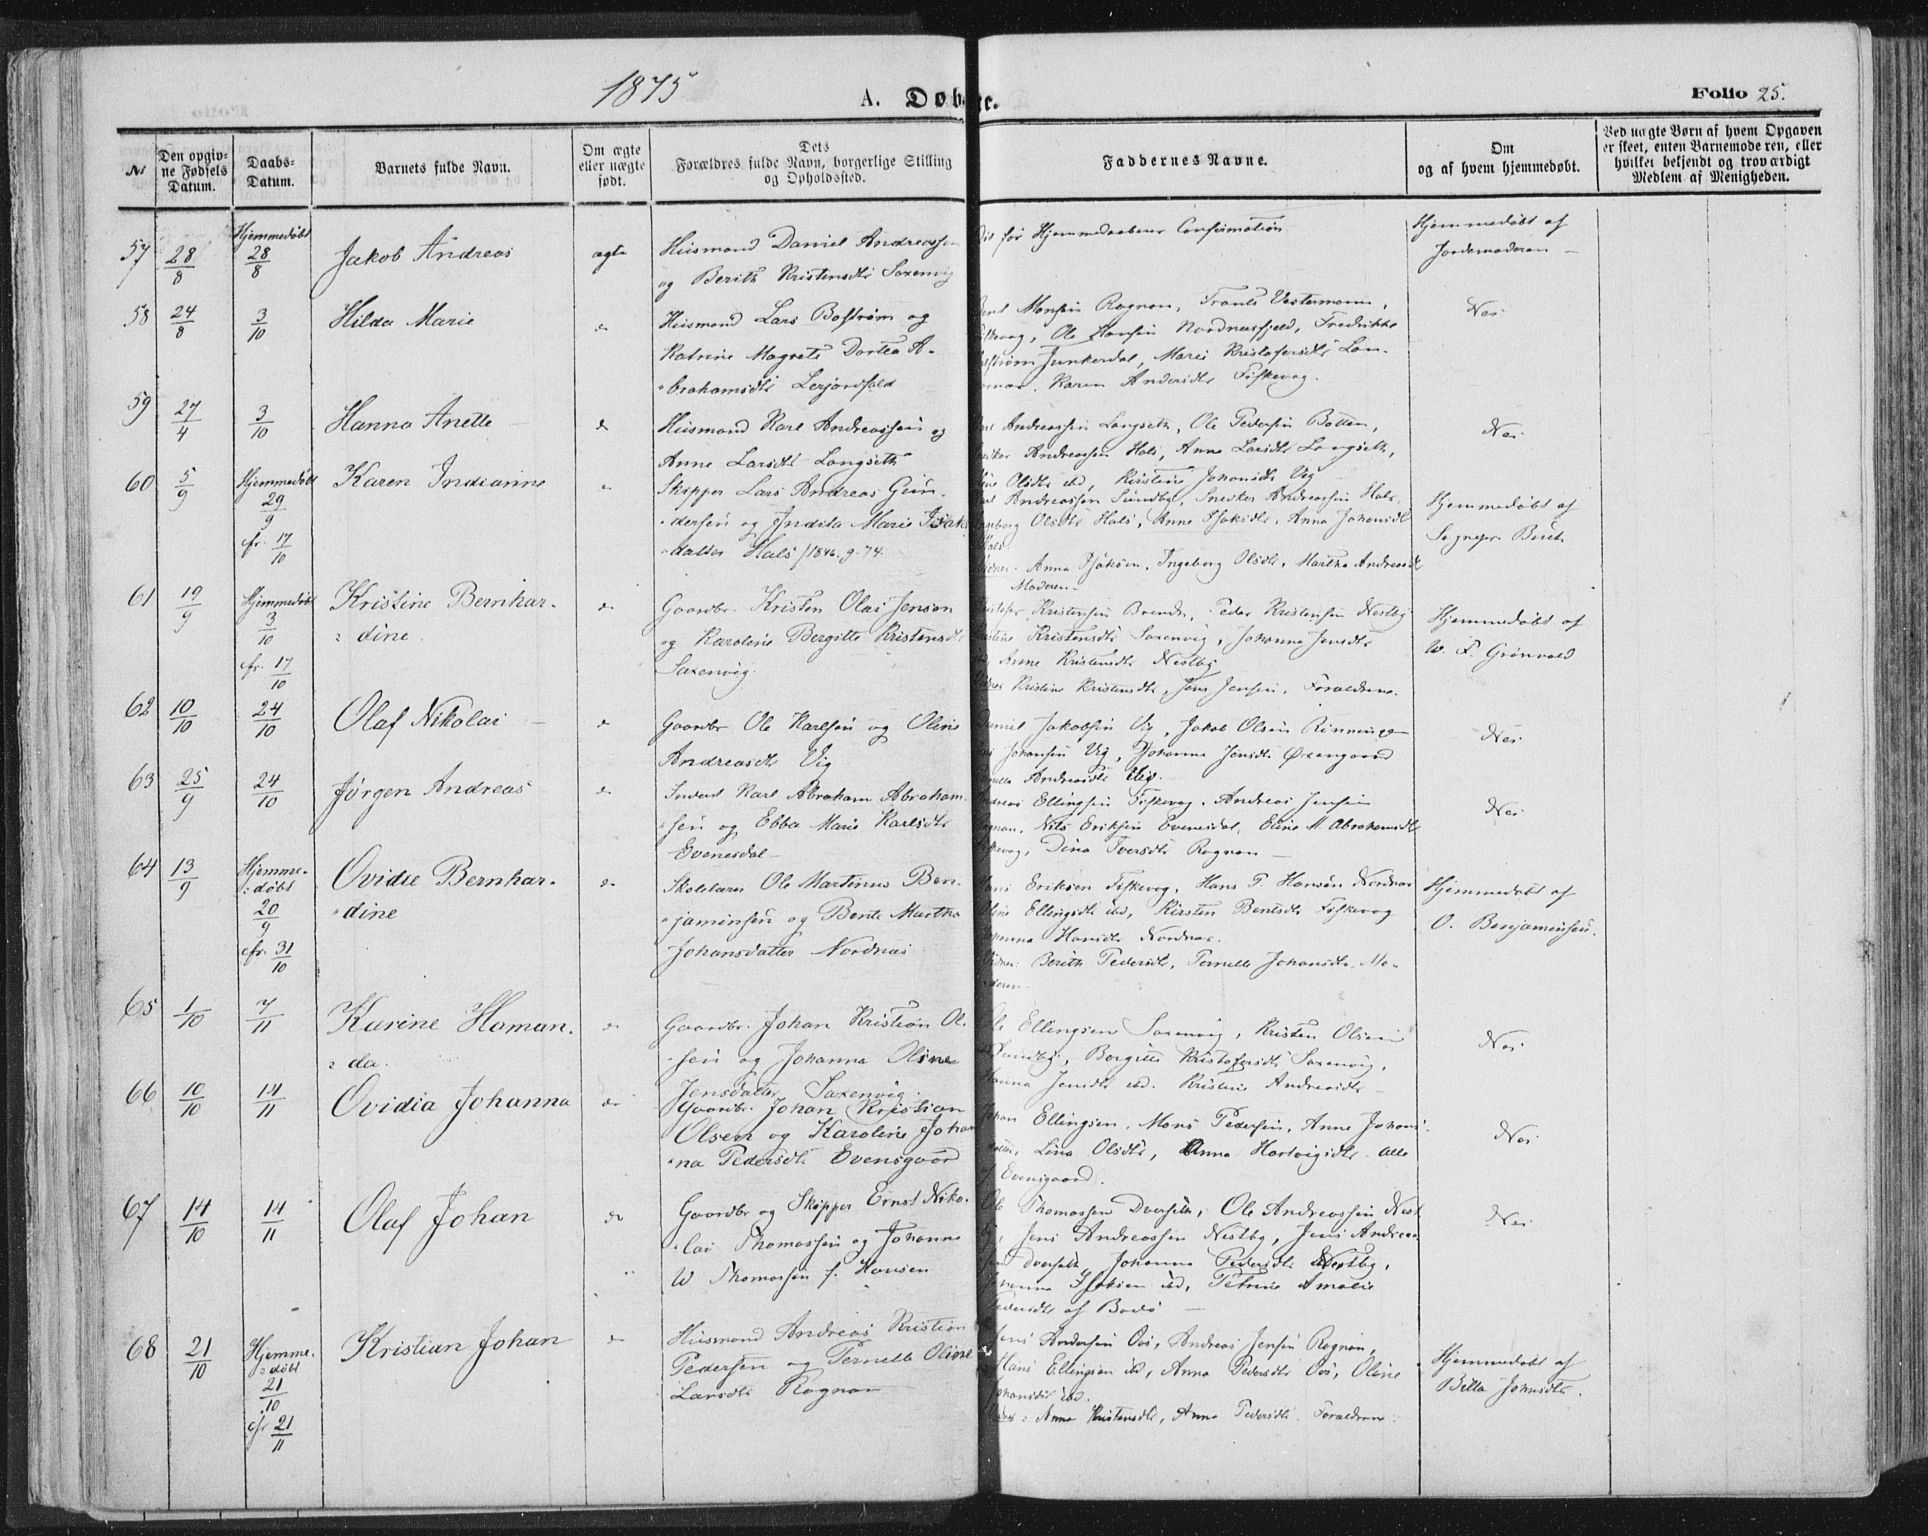 1875
A. Døb
e.
Folio 25.
No
Den opgiv-
ne Fødsels
Datum.
Daabs-
Datum.
Barnets fulde Navn.
Om ægte
eller uægte
født.
Dets
Forældres fulde Navn, borgerlige Stilling
og Opholdssted.
Faddernes Navne.
Om
og af hvem hjemmedøbt.
Ved uægte Børn af hvem Opgaven
er skeet, enten Barnemoderen, eller
hvilket bekjendt og troværdigt
Medlem af Menigheden.
57
28/8
Hjemmedøbt
28/8
Jakob Andreas
ægte
Husmand Daniel Andreassen
og Berith Kristensdtr Saxenvig
før Hjemmedaabens Confirmation
Hjemmedøbt af
Jordemoderen —
58
24/8
3/10
Hilda Marie
Husmand Lars Bostrøm og
Katrine Magrete Dortea A-
brahamsdtr Lerjordfald
Monsen Rognan, Frants Vestermann,
Ole Hansen Nordnesfjeld, Fredrikke
Junkerdal, Maren Kristofersdtr
Karen Andersdtr Fiskevag.
Nei
59
27/4
3/10
Hanna Anette
Husmand Karl Andreassen og
Anne Larsdtr Langseth
Andreassen Langseth, Ole Pedersen Botten,
Andreassen Hals, Anne Larsdtr Langseth,
Olsdtr ibd, Kirstine Johansdtr Vig
Nei
60
5/9
Hjemmedøbt
29/9
cfr. 17/10
Karen Indianne
Skipper Lars Andreas Gun-
dersen og Indita Marie Isaks-
datter Hals /1846. g. 74.
Andreassen Sundby, Snedker Andreassen Hals,
Ingeborg Olsdtr Hals, Anne Isaksdtr, Anna Johansdtr
Hals.
Anna Isaksen, Ingeborg Olsdtr, Martha Andreasdtr
Moderen —
Hjemmedøbt af
Sognepr. Buch
61
19/9
Hjemmedøbt
3/10
cfr. 17/10
Kristine Bernhar-
dine.
Gaardbr. Kristen Olai Jensen
og Karoline Bergitte Kristensdtr
Saxenvig.
Kristensen Brendn, Peder Kristensen Nestby
Kristensdtr Saxenvig, Johanna Jensdtr
Anne Kristensdtr Nestby
Kristine Kristensdtr, Jens Jensen, Forældrene.
Hjemmedøbt af
W. F. Grønvold
62
10/10
24/10
Olaf Nikolai
Gaardbr Ole Karlsen og Oline
Andreasdtr Vig
Daniel Jakobsen Vig, Jakob Olsen
Johansen Vig, Johanna Jensdtr Øxengaard
Andreasdtr Vig.
Nei
63
25/9
24/10
Jørgen Andreas
Inderst Karl Abraham Abraham-
sen og Ebba Marie Karlsdtr
Evenesdal
Andreas Ellingsen Fiskevag, Andreas Jensen
Rognan, Nils Eriksen Evenesdal, Eline M. Abrahamsdtr
Dina Iversdtr Rognan —
Nei
64
13/9
Hjemme-
døbt
20/9
cfr. 31/10
Ovidie Bernhar-
dine
Skolelærer Ole Martinus Ben-
jaminsen og Bente Martha
Johansdatter Nordnæs
Hans Eriksen Fiskevag, Hans P. Hansen Nordnæs
Oline Ellingsdtr ibd, Kirsten Bentsdtr Fiskevag
Hansdtr Nordnæs.
Berith Pedersdtr, Pernelle Johansdtr, Mo-
deren
Hjemmedøbt af
O. Benjaminsen.
65
1/10
7/11
Karine Haman-
da.
Gaardbr. Johan Kristian Ol-
sen og Johanna Oline
Jensdatter Saxenvig.
Ole Ellingsen Saxenvig, Kristen Olsen
Sundby, Bergitte Kristofersdtr Saxenvig,
Jensdtr ibd. Kristine Andreasdtr —
Nei
66
10/10
14/11
Ovidia Johanna
Gaardbr. Johan Kristian
Olsen og Karoline Johan-
na Pedersdtr Evensgaard
Johan Ellingsen, Mons Pedersen, Anne Johans-
Lina Olsdtr, Anna Hartvigsdtr. Alle
af Evensgaard.
Nei
67
14/10
14/11
Olaf Johan
Gaardbr og Skipper Ernst Niko-
lai Thomassen og Johanna
W Thomassen f. Hansen
Ole Thomassen Dverseth, Ole Andreassen Nest-
by, Jens Andreassen Nestby, Jens Andreas-
sen Dverseth, Johanna Pedersdtr Nestby,
Isaksen ibd, Petrine Amalie
Pedersdtr af Bodø —
Nei
68
21/10
Hjemme-
døbt
21/10
cfr 21/11
Kristian Johan
Husmand Andreas Kristian
Pedersen og Pernelle Oline
Larsdtr Rognan
Jens Andersen Oos, Andreas Jensen Rognan,
Hans Ellingsen ibd, Anna Pedersdtr Oos, Oline
Johansdtr ibd.
Anna Kristensdtr, Anna Pedersdtr. Forældrene
Hjemmedøbt af
Johnsdtr.